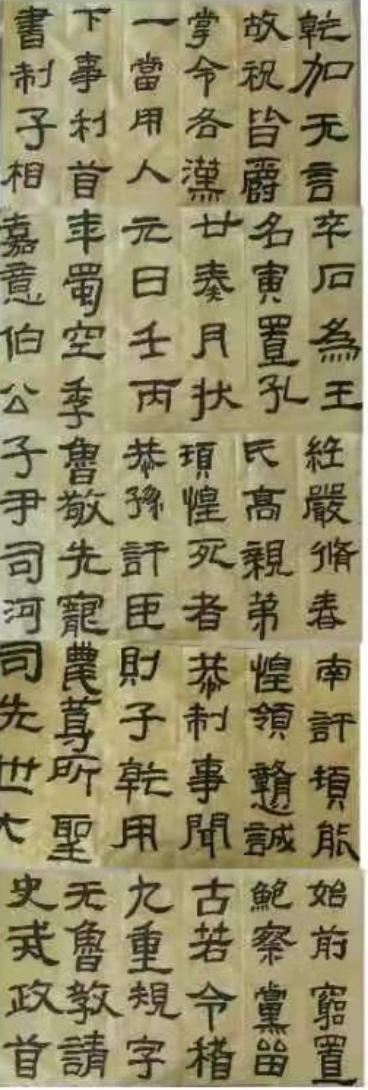 乾加无言
故祝皆爵
掌令各漢
一當用人
下事利首
書制子相
卒石為王
名寅置孔
廿奏月状
元日壬丙
年蜀空季
嘉意伯公
經嚴脩春
氏高親弟
頊惶死者
恭孫訢臣
魯敬先寵
子尹司河
南訢頊能
惶領戇誠
恭制事聞
則子乾用
農尊所聖
司先世大
始前窮置
鮑察黨留
古若令稽
九重規字
无魯教請
史戒政首